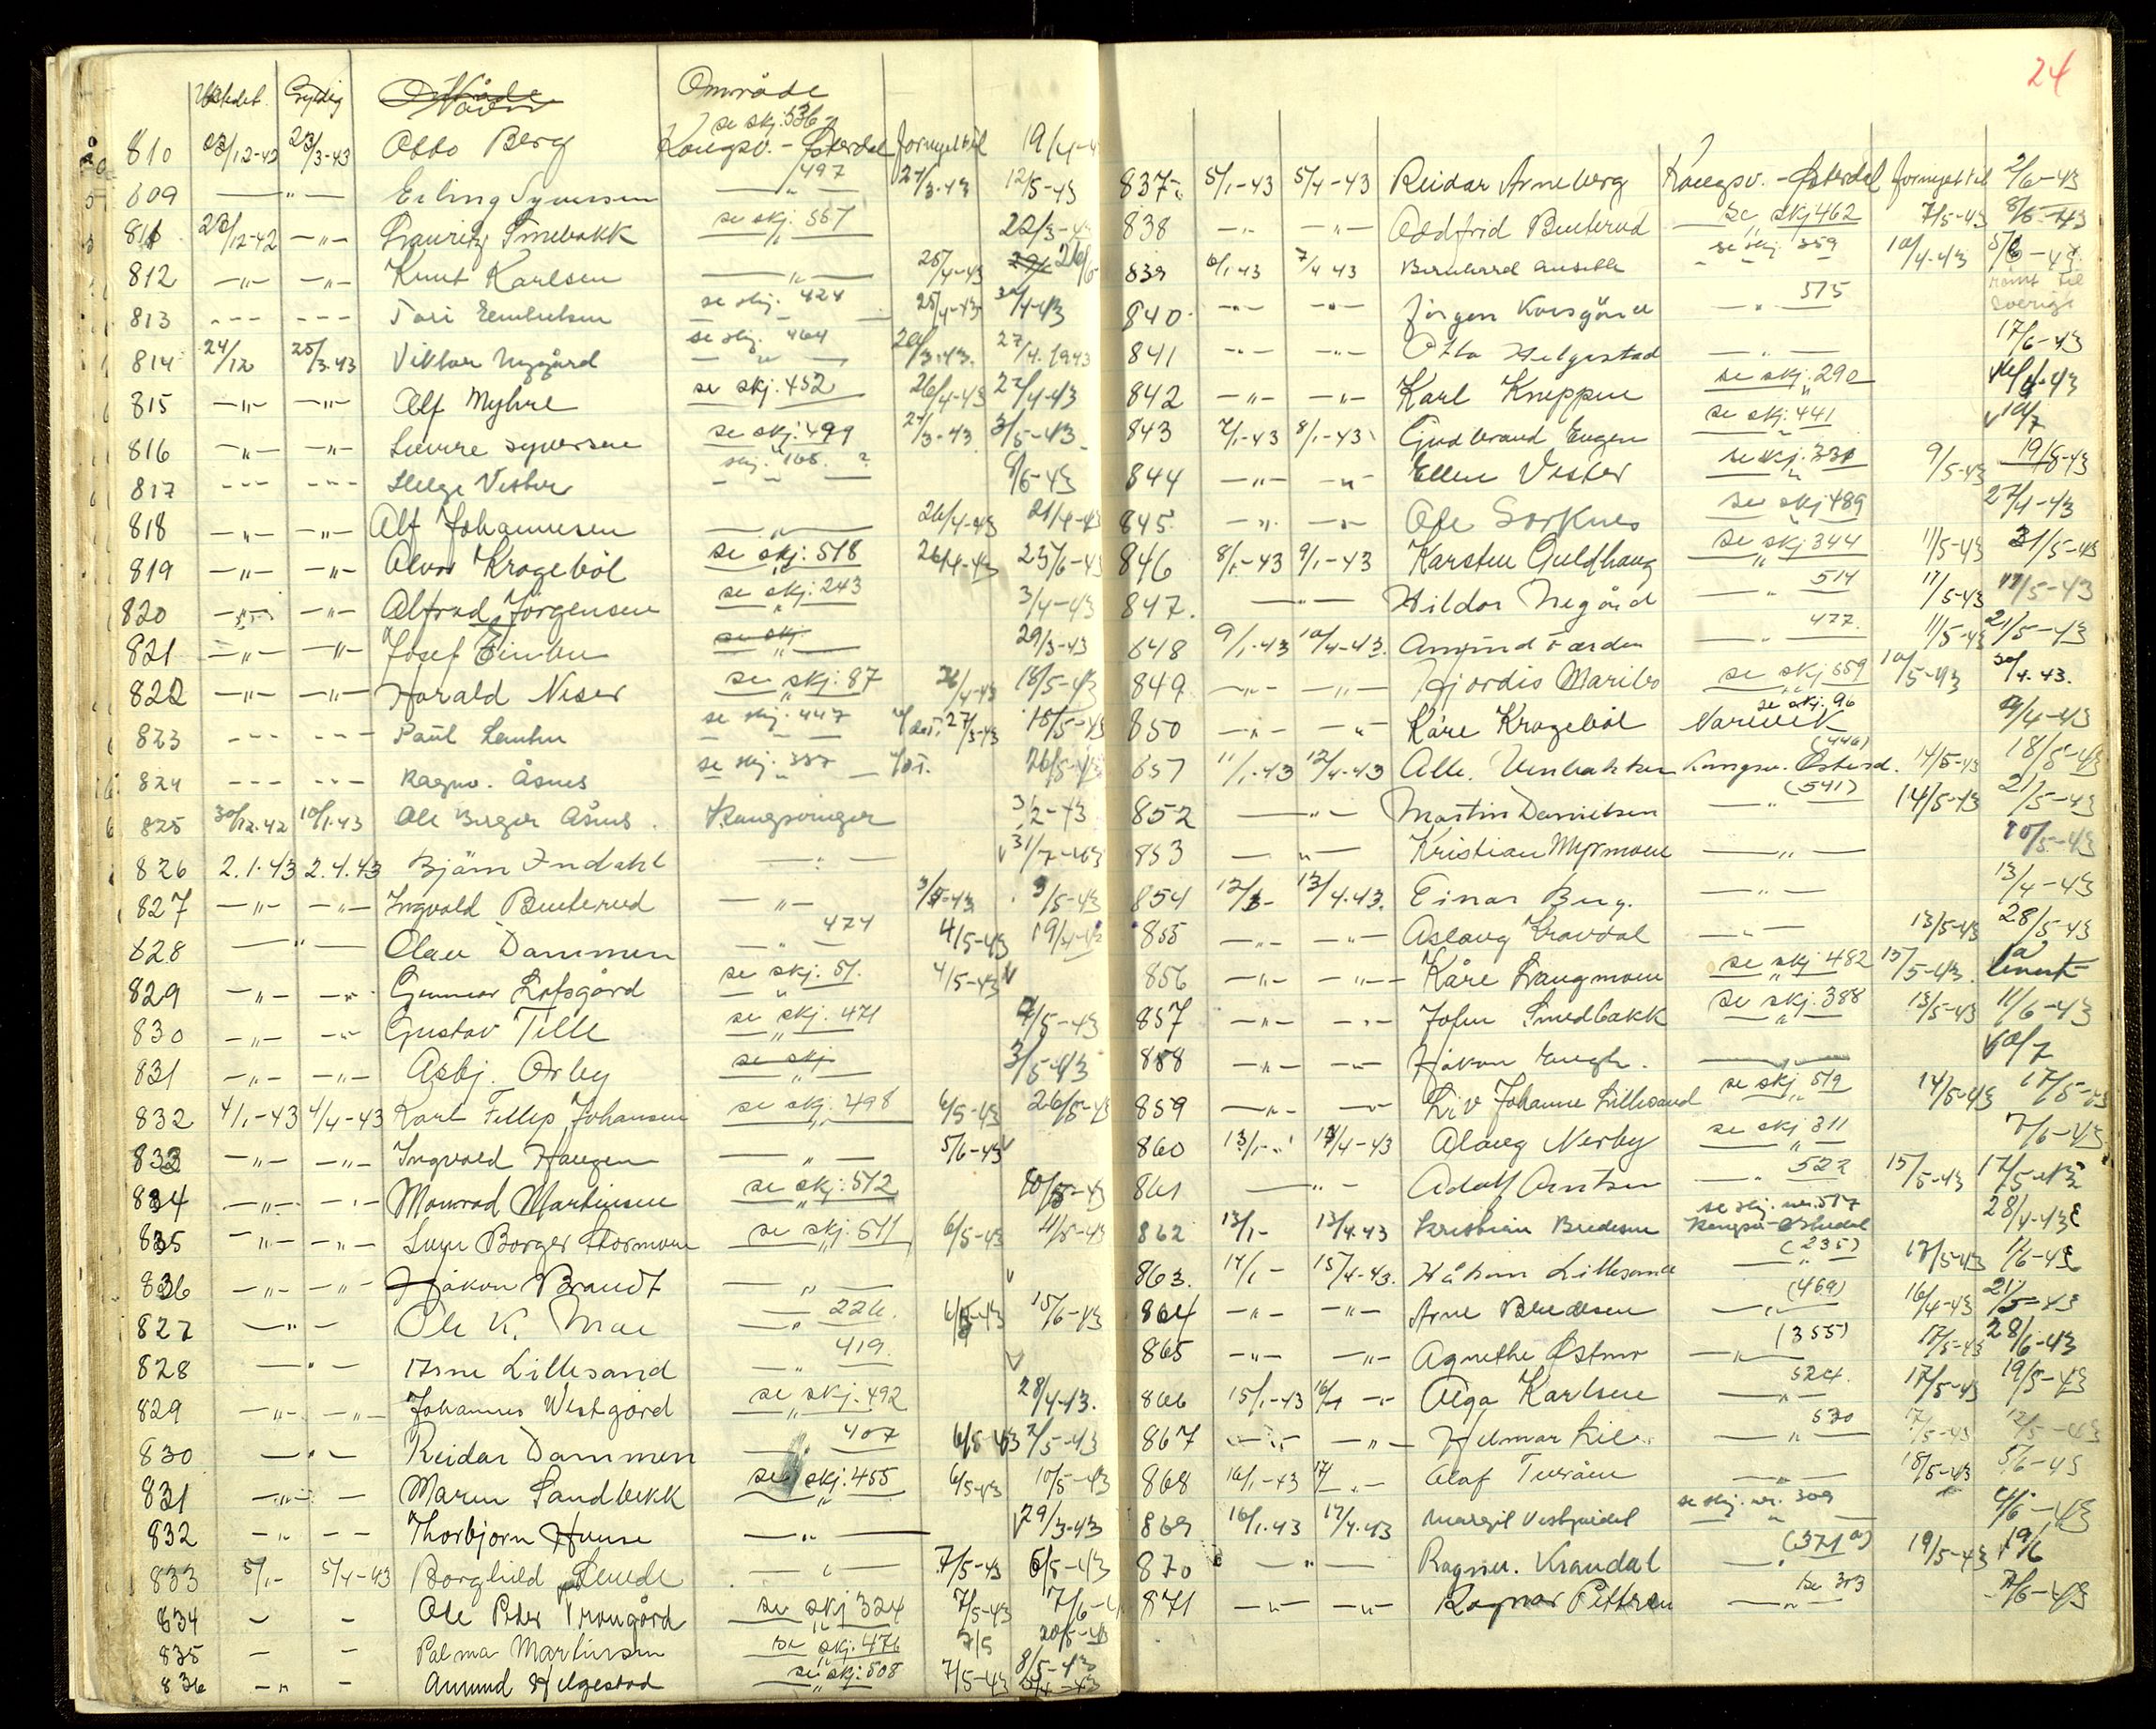 Utstedt. Gyldig Navn Område
se skj. 536
810 23/12-42 23/3-43 Otto Berg Kongsv. - Østerdal fornyet til 19/4-4
809 — " — Erling Syversen 497 — " — 27/3-43 12/5-43
811 23/12-42 — " — Lauritz Smebakk se skj. 567 22/3-43
812 — " — — " — Knut Karlsen — " — 25/4-43 26/6-
813 - - - - - - Tori se skj. 424 25/4-43 30/4-43
814 24/12 25/3.43 Viktor Nygård se skj. 464 27/4.1943
815 — " — — " — Alf Myhre se skj. 452 26/4-43 27/4-43
816 — " — — " — Sverre Syversen se skj. 499 27/3-43 3/5-43
817 - - - - - - Helge Vester skj. 165. ? 8/6-43
818 — " — — " — Alf Johannesen — " — 26/4-43 21/4-43
819 — " — — " — Alvar Krogeböl se skj. 518 26/4-43 25/6-43
820 — " — — " — Alfred Jörgensen se skj. 243 3/4-43
821 — " — — " — Josef se skj. 29/3-43
822 — " — — " — Harald Neser se skj. 87 26/4-43 18/5-43
823 - - - - - - Paul se skj. 447 27/3-43 15/5-43
824 - - - - - - Ragnv. Åsnes se skj. 387 26/5-43
825 30/12.42 10/1.43 Ole Birger Åsnes Kongsvinger 3/2-43
826 2.1.43 2.4.43 Bjärn Indahl — " — 31/7-43
827 — " — — " — Ingvald Buterud — " — 3/5-43 3/5-43
828 — " — Olav Dammen 474 4/5-43
829 — " — — " — Gunnar Lofsgård se skj. 51. 4/5-43
830 — " — — " — Gustav Tille se skj. 471 7/5-43
831 — " — — " — Asbj. Orby se skj. 3/5-43
832 4/1-43 4/4-43 Karl Fillip Johansen se skj. 498 6/5-43 26/5-43
833 — " — — " — Ingvald Haugen — " — 5/6-43
834 — " — — " — Monrad Martinsen se skj. 512 10/5-43
835 — " — — " — Borger Stormoen se skj. 511 6/5-43 4/5-43
836 — " — — " — Håkon Brandt — " —
827 — " — Ole K. Moe 226. 15/6-43
828 — " — Arne Lillesand 419.
829 — " — — " — Johannes Westgård se skj. 492 28/4-43.
830 — " — Reidar Dammen 407 6/5-43 7/5-43
831 — " — Maren Sandbekk se skj. 455 6/5-43 10/5-43
832 — " — Thorbjorn — " — 29/3-43
833 5/1- 5/4-43 Borghild — " — 7/5-43 6/5-43
834 - - Ole Peder Vrangård se skj 324 7/5-43 7/6-
835 - - Palma Martinsen se skj. 476 7/5 20/5-43
836 - " - Amund Helgestad se skj. 508 7/5-43 8/5-43
24
837. 5/1-43 5/4-43 Reidar Arneberg Kongsv. - Østerdal fornyet til 2/6-43
838 — " — — " — Oddfrid Buterud se skj 462 7/5-43 8/5-43
839 6/1.43 7/4 43 Bernhard se skj. 359 10/4.43
rømt til Sverige
840 — " — — " — Jörgen Korsgård 575
841 — " — — " — Otto Helgestad — " — 17/6-43
842 — " — — " — Karl Kneppen se skj. 290
843 7/1-43 8/1-43 Gudbrand Engen se skj. 441 10/7
844 — " — — " — Ellen Vester se skj. 331 9/5-43 19/5-43
845 — " — — " — Ole Sorknes se skj 489 27/4-43
846 8/1-43 9/1-43 Karsten Guldhaug se skj 344 11/5-43 31/5-43
847. — " — Hildor Negård 514 11/5-43 11/5-43
848 9/1-43 10/4-43. Amund Færden 477. 11/5-43 21/5-43
849 — " — — " — Hjördis Maribo se skj 559 10/5-43 30/4.43.
850 — " — — " — Kåre Krogeböl Narvik se skj. 96 9/4-43
851 11/1-43 12/4-43 Kongsv. Østerd. (446) 14/5-43 18/5-43
852 — " — Martin Danielsen (541) 14/5-43 21/5-43
853 — " — Kristian Myrmoen — " — 10/5-43
854 12/1- 13/4.43. Einar Berg. — " — 13/4-43
855 — " — — " — Aslaug Kravdal — " — 13/5-43 28/5-43
856 — " — — " — Kåre Langmoen se skj 482 13/5-43.
857 — " — — " — John Smedbakk se skj. 388 13/5-43 11/6-43
858 — " — — " — Håkon Engh. — " — 10/7
859 — " — — " — Liv Johanne Lillesand se skj. 519 14/5-43 17/5-43
860 13/1- 14/4-43 Alaug Nerby se skj 311 7/6-43
861 — " — Adolf Arntsen 522 15/5-43 17/5-43
862 13/1- 13/4.43 Kristian Bredesen se skj. nr. 517 Kongsv-Østerdal 28/4-43
863. 14/1- 15/4-43. Håkon Lillesand (235) 17/5-43 1/6-43
864 — " — — " — Arne Bredesen (469) 16/4-43 21/5-43
865 — " — — " — Agnethe Østmo (355) 17/5-43 28/6-43
866 15/1-43 16/4 — " — Olga Karlsen 524. 17/5-43 19/5-43
867 — " — — " — Hilmar Lie 530 17/5-43 12/5-43
868 16/1-43 17/ — " — Olaf — " — 18/5-43 5/6-43
869 16/1.43 17/4.43 Margit se skj. nr. 309 4/6-43
870 — " — Ragnv. Kravdal (371 a) 19/5-43 19/6
871 — " — — " — Ragnar Pettersen se 303 7/6-43